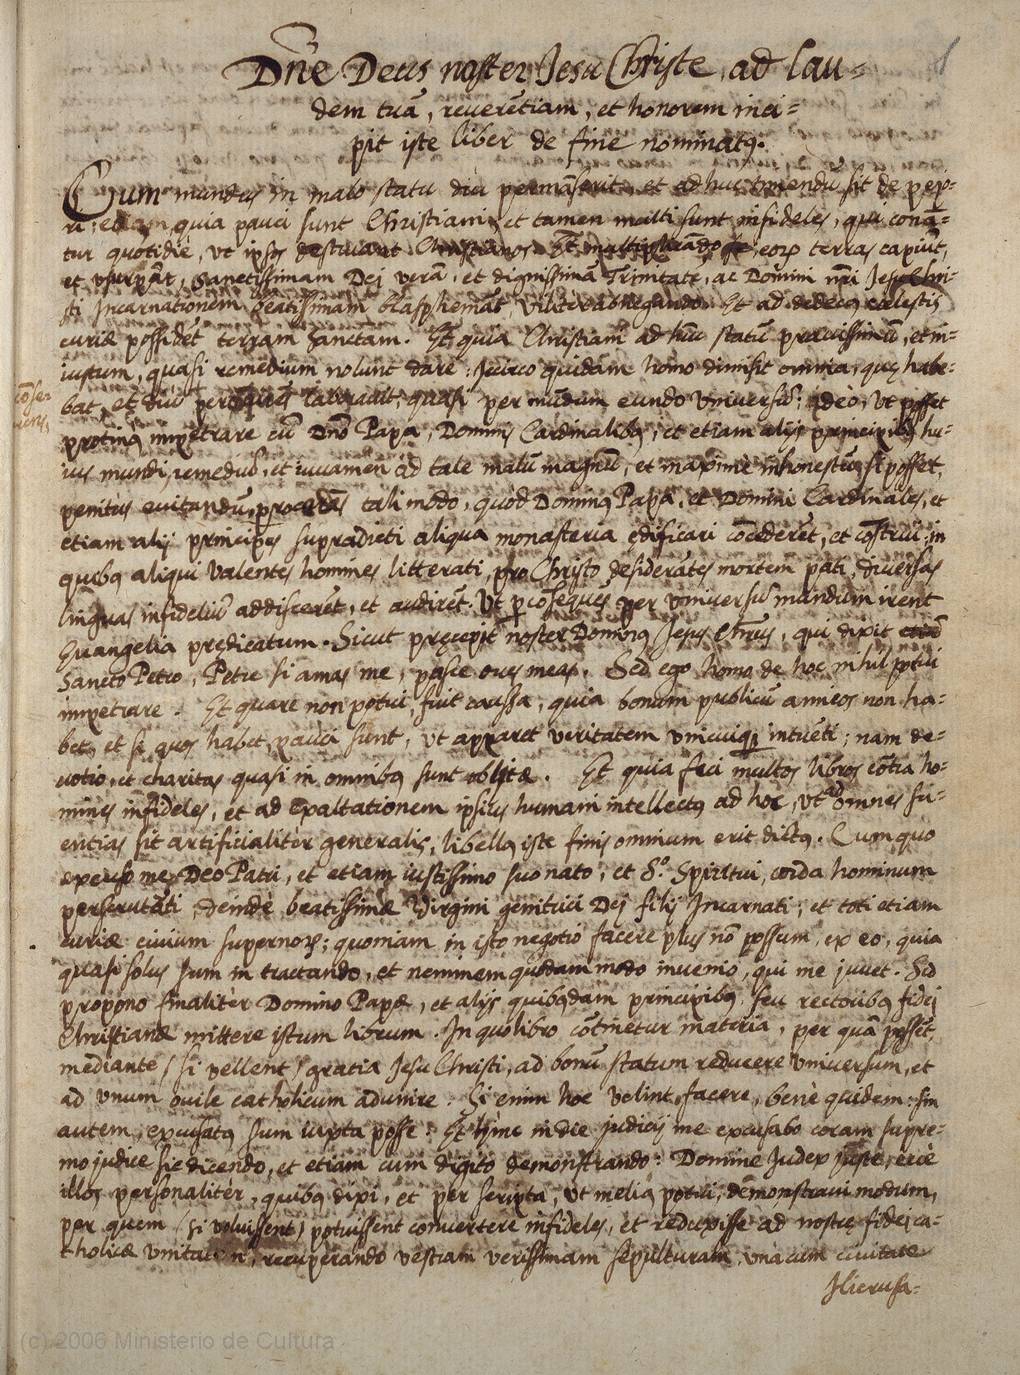 Dñe Deus noster Jesu Christe, ad lau=
dem tuā, reuerētiam, et honorem inci=
pit iste liber de fine nominatꝰ.
Cum mundus in malo statu diu permāserit, et adhuc timendū sit de pejo=
ri; etiam quia pauci sunt Christiani, et tamen multi sunt infideles, qui conā=
tur quotidiè, ut ipsos destruant Christianos. Et multiplicādo se, eorꝫ terras capiūt,
et usurpāt, sanctissimam Dej verā, et dignissimā Trinitatē, ac Domini nr̄i Jesu Chri=
sti Incarnationem beatissimam blasphemāt, viliter abnegando. Et ad dedecꝰ cælestis
curiæ possidēt terram sanctam. Et quia Christiani ad hūc statū prauissimū, et in=
iustum, quasi remedium nolunt dare; Iccirco quidam homo dimisit omnia, quę habe=
bat, et diu laborauit, quasi per mūdum eundo vniuersū; ideò, ut posset
protinꝰ impetrare cū Dnō Papa, Dominis Cardinalibꝰ, et etiam alijs principibꝰ hu=
ius mundi, remediū, et iuuamen ad tale malū magnū, et maximè inhonestū, si posset,
penitus euitandū, tali modo, quod Dominꝰ Papa, et Domini Cardinales, et
etiam alij principes supradicti aliqua monasteria ędificari cōcederēt, et cōstrui; in
quibꝰ aliqui valentes homines litterati, pro Christo desiderātes mortem pati, diuersas
linguas infideliū addiscerēt, et audirēt. Ut per vniuersū mundum irent
Euangelia prędicatum. Sicut pręcepit noster Dominꝰ Jesus Chrūs, qui dixit
Sancto Petro, Petre si amas me, pasce oues meas. Sed ego homo de hoc nihil potui
impetrare. Et quare non potui, fuit caussa, quia bonum publicū amicos non ha=
bet, et si quos habet, pauci sunt, ut apparet veritatem vnicuiqꝫ intuēti; nam de=
uotio, et charitas quasi in omnibꝰ sunt oblitæ. Et quia feci multos libros cōtra ho=
mines infideles, et ad exaltationem ipsius humani intellectꝰ ad hoc, ut omnes sci=
entias sit artificialitèr generalis, libellꝰ iste finis omnium erit dictꝰ. Cum quo
excuso me Deo Patri, et etiam iustissimo suo nato, et S.º Spiritui, corda hominum
perscrutāti, deindè beatissimæ Virgini genitrici Dej filij Incarnati; et toti etiam
curiæ ciuium supernorꝫ; quoniam in isto negotio facere plus nō possum, ex eo, quia
quasi solus sum in tractando, et neminem quodam modo inuenio, qui me juuet. Sed
propono finalitèr Domino Papæ, et alijs quibꝰdam principibꝰ, seu rectoribꝰ fidej
Christianæ mittere istum librum. In quo libro cōtinetur materia, per quā possēt,
mediante (si vellent) gratia Jesu Christi, ad bonū statum reducere vniuersum, et
ad vnum ouile catholicum adunire. Si enim hoc velint facere, benè quidem: sin
autem, excusatꝰ sum iuxta posse. Et hinc in die judicij me excusabo coram supre=
mo judice sic dicendo, et etiam cum digito demonstrando: Domine Judex juste, ecce
illos personalitèr, quibꝰ dixi, et per scripta, ut meliꝰ potui, demonstraui modum,
per quem (si voluissent) potuissent conuertere infideles, et reduxisse ad nostrę fidei ca=
tholicæ, recuperando vestram verissimam sepulturam, vna cum ciuitate
Hierusa=
(c) 2006 Ministerio de Cultura